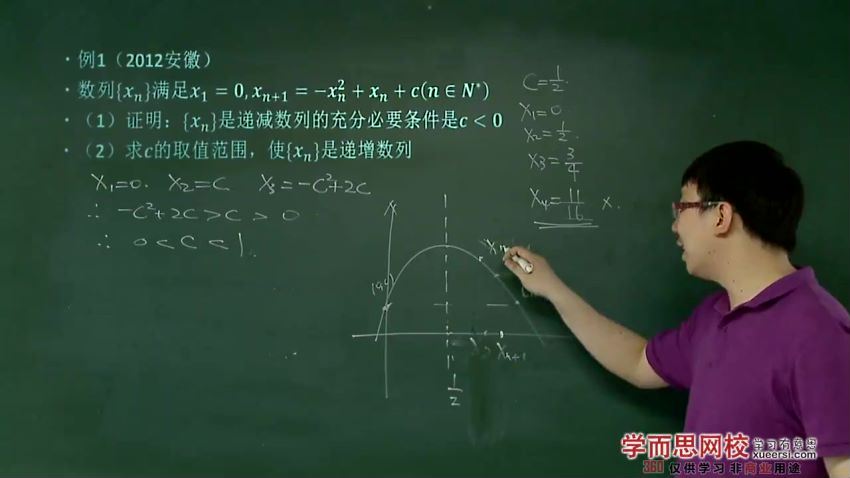 · 例1（2012安徽）
· 数列{xₙ}满足x₁ = 0, xₙ₊₁ = −xₙ² + xₙ + c(n ∈ N*)
· （1）证明：{xₙ}是递减数列的充分必要条件是c < 0
· （2）求c的取值范围，使{xₙ}是递增数列
X₁=0. X₂=C X₃=-C²+2C
∴ -C²+2C>C>0
∴ 0<C<1.
C=1/2.
X₁=0.
X₂=1/2.
X₃=3/4
X₄=11/16 ×.
Xₙ₊₁
1/2
学而思网校
学习有意思
xueersi.com
360 仅供学习 非商业用途